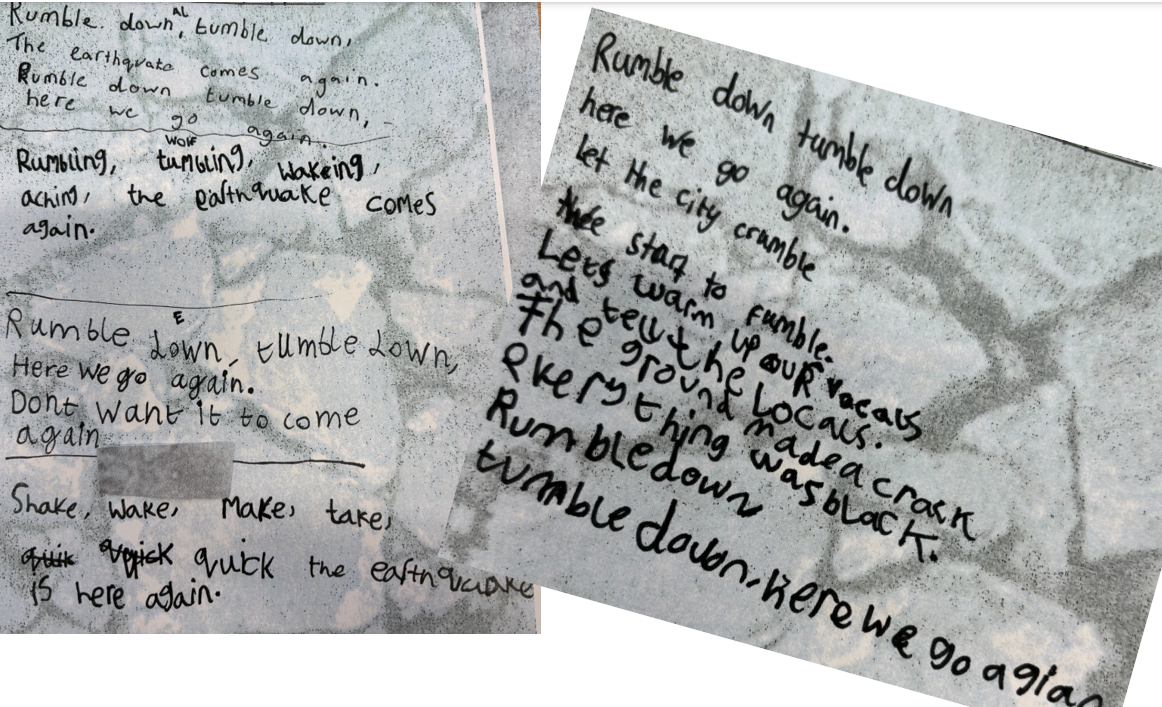 Rumble. down, tumble down,
AL
The earthquake comes again.
Rumble down tumble down,
here we go again.
WOLF
Rumbling, tumbling, wakeing,
aching, the earthquake comes
again.
E
Rumble down, tumble down,
Here we go again.
Dont want it to come
again
Shake, wake, make, take,
quik quick the earthquake
is here again.
Rumble down tumble down
here we go again.
let the city crumble
start to fumble.
Lets warm up our vocals
and tell the locals.
The ground made a crack
everything was black.
Rumble down
tumble down, here we go agian